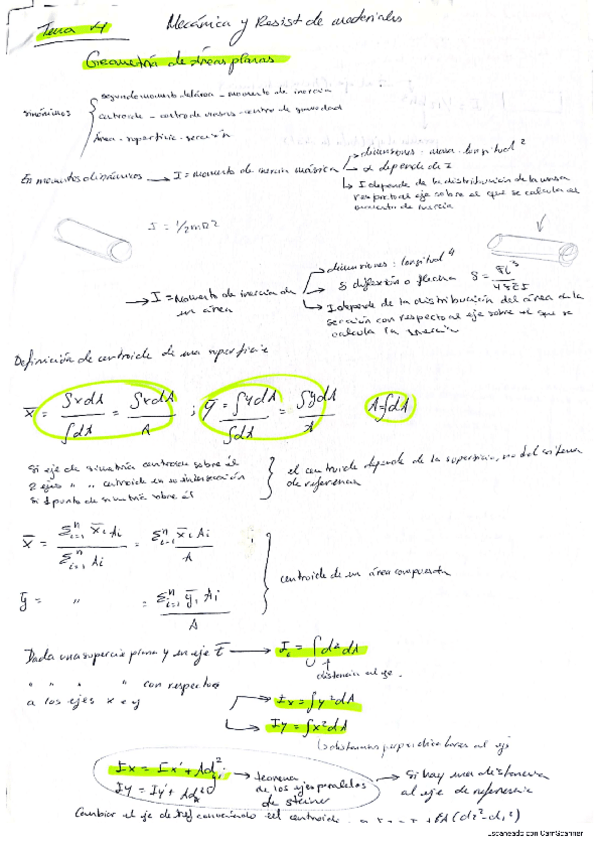 Tema 4
Mecánica y Resist de materiales
Geometría de áreas planas
sinónimos
segundo momento de área - momento de inercia
centroide - centro de masas - centro de gravedad
Área - superficie - sección
En momentos dinámicos → I = momento de inercia másica
dimensiones - masa · longitud 2
α depende de I
I depende de la distribución de la masa
respecto al eje sobre el que se calcula el
momento de inercia
I = 1/2 m R2
→ I = Momento de inercia de
un área
dimensiones: longitud 4
δ deflexión o flecha δ =
I depende de la distribución del área de la
sección con respecto al eje sobre el que se
calcula la inercia
Definición de centroide de una superficie
x̄ = ∫xdA / ∫dA = ∫xdA / A ; ȳ = ∫ydA / ∫dA = ∫ydA / A A=∫dA
Si eje de simetría centroide sobre él
2 ejes " " centroide en su intersección
Si punto de simetría sobre él
el centroide depende de la superficie, no del sistema
de referencia
x̄ = Σi=1n x̄i Ai / Σi=1n Ai = Σi=1n x̄i Ai / A
ȳ = " = Σi=1n ȳi Ai / A
centroide de un área compuesta
Dada una superficie plana y un eje t → It = ∫d2 dA
distancia al eje.
" " " " con respecto
a los ejes x e y
Ix = ∫y2dA
Iy = ∫x2dA
distancias perpendiculares al eje
Ix = Ix' + Ad2y
Iy = Iy' + Ad2x
→ teorema
de los ejes paralelos
de steiner
→ Si hay una distancia
al eje de referencia
Cambiar el eje de ref conociendo el centroide
Escaneado con CamScanner